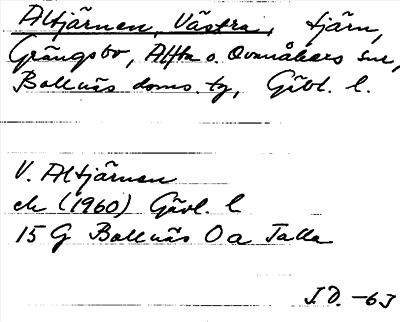 Altjärnen, Västra, tjärn,
Grängsbo, Alfta o. Ovanåkers snr,
Bollnäs doms. tg, Gävl. l.
V. Altjärnen
ek (1960) Gävl. l
15 G Bollnäs O a Talla
I D. -63